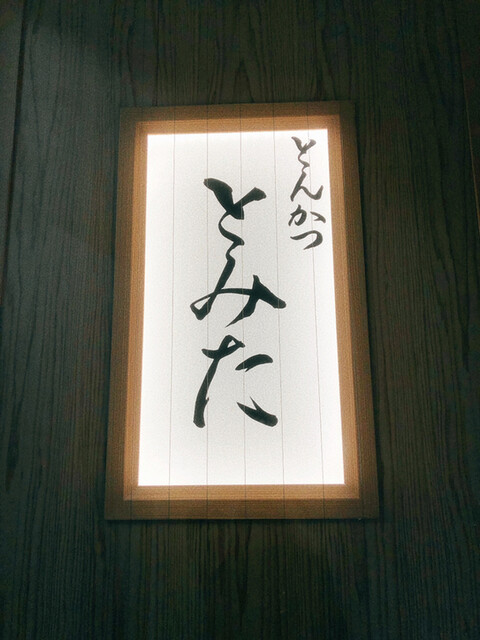 とんかつ
とみた